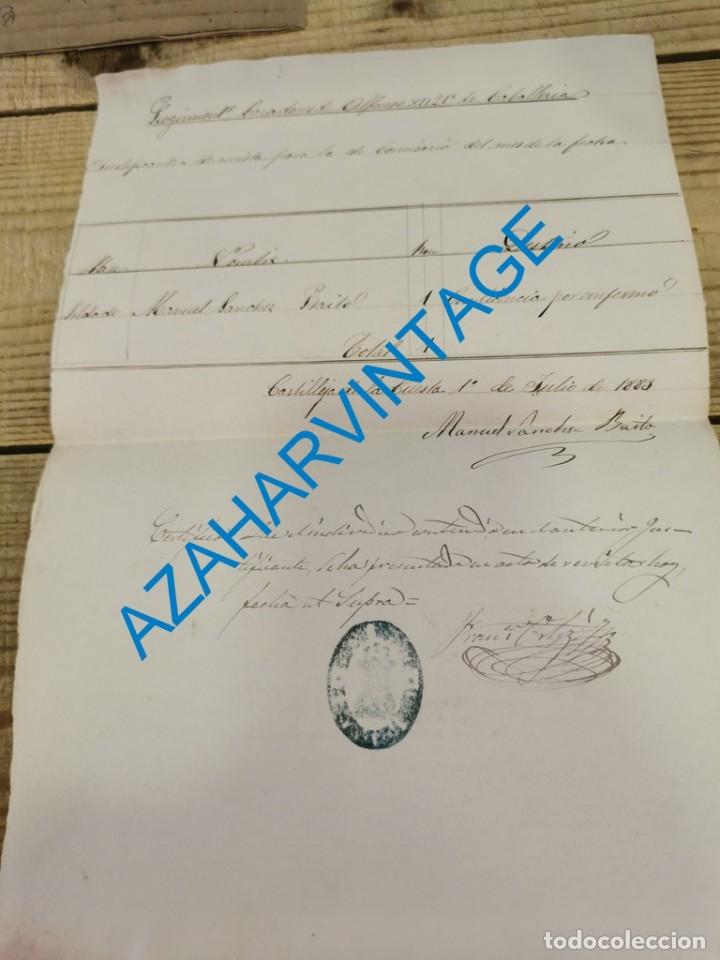 Regimiento Cazadores de Alfonso XII 21º de Caballeria
Justificante de revista para la de Comisario del mes de la fecha
Nombre Destino
Soldado Manuel Sanchez Baito 1 por enfermo
Total 1
Castilleja de la Cuesta 1º de Julio de 1883
Manuel Sanchez Baito
Certifico que el individuo contenido en el anterior Jus-
tificante, se ha presentado en acto de revista hoy
fecha ut Supra=
AZAHARVINTAGE
todocoleccion